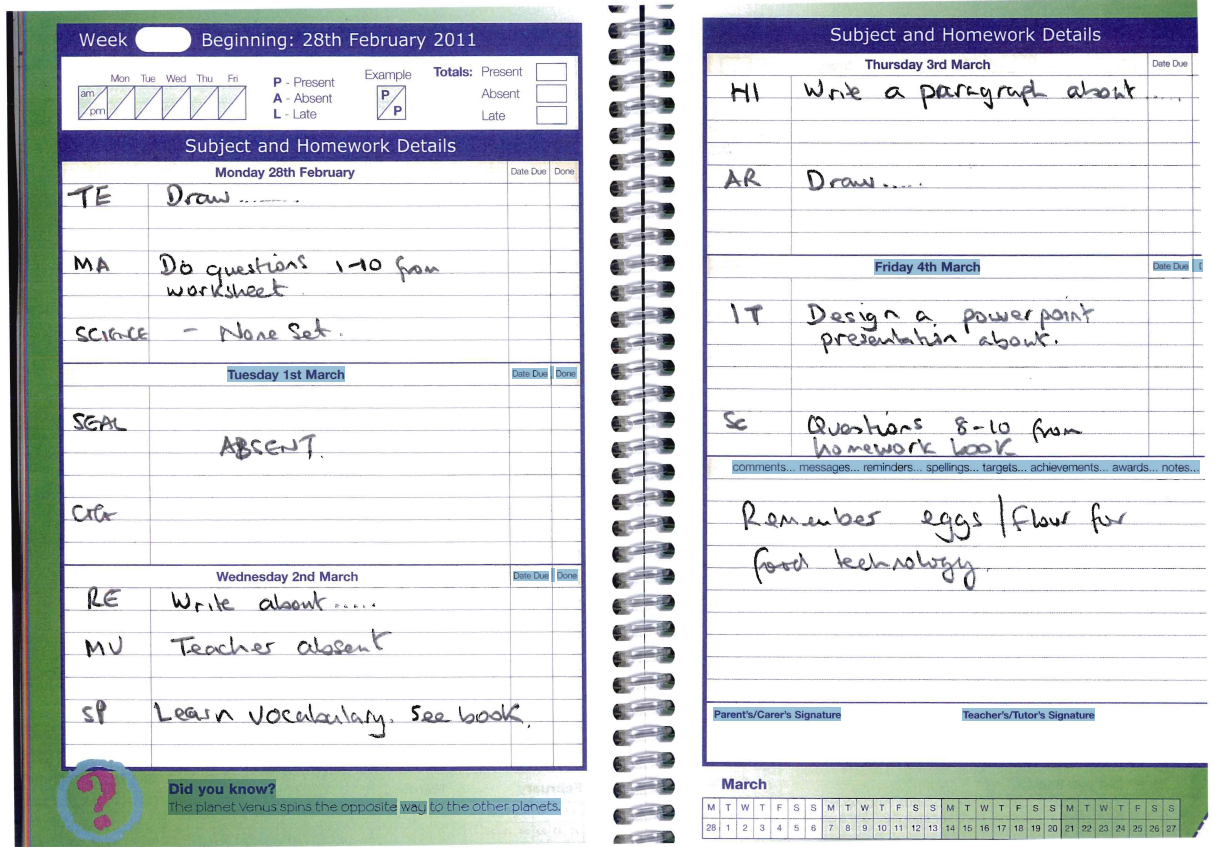 Week Beginning: 28th February 2011
Mon Tue Wed Thu Fri
am
pm
P - Present
A - Absent
L - Late
Example
P
P
Totals: Present
Absent
Late
Subject and Homework Details
Monday 28th February Date Due Done
TE Draw ........
MA Do questions 1-10 from
worksheet
SCIENCE - None Set.
Tuesday 1st March Date Due Done
SEAL
ABSENT.
Wednesday 2nd March Date Due Done
RE Write about .....
MU Teacher absent
SP Learn vocabulary. See book.
?
Did you know?
The planet Venus spins the opposite way to the other planets.
Subject and Homework Details
Thursday 3rd March Date Due
HI Write a paragraph about ....
AR Draw.....
Friday 4th March Date Due
IT Design a powerpoint
presentation about.
Sc Questions 8-10 from
homework book
comments... messages... reminders... spellings... targets... achievements... awards... notes...
Remember eggs / flour for
food technology.
Parent's/Carer's Signature Teacher's/Tutor's Signature
March
M T W T F S S M T W T F S S M T W T F S S M T W T F S S
28 1 2 3 4 5 6 7 8 9 10 11 12 13 14 15 16 17 18 19 20 21 22 23 24 25 26 27